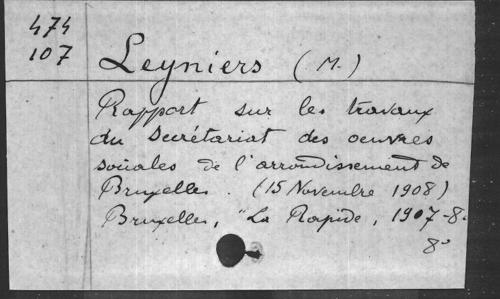 474
107
Leyniers (M.)
Rapport sur les travaux
du Secrétariat des oeuvres
sociales de l'arrondissement de
Bruxelles. (15 Novembre 1908)
Bruxelles, "La Rapide, 1907-8.
8°